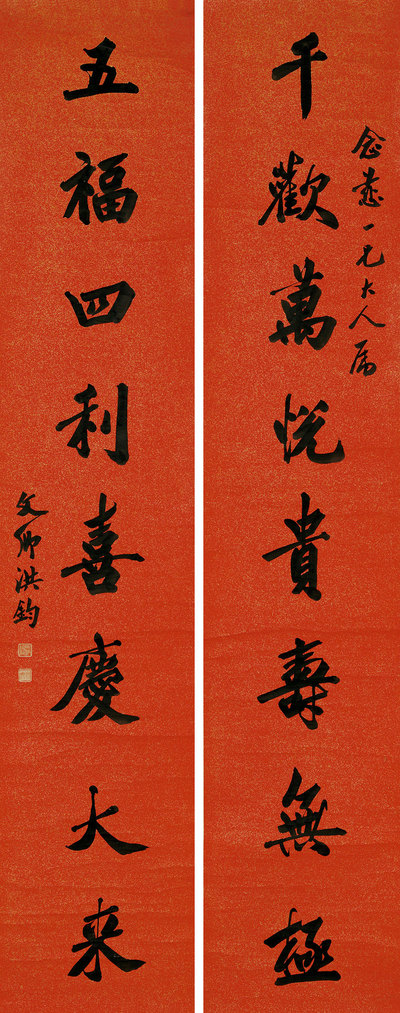 千歡萬悅貴壽無極
念慈一兄大人屬
五福四利喜慶大来
文卿洪鈞